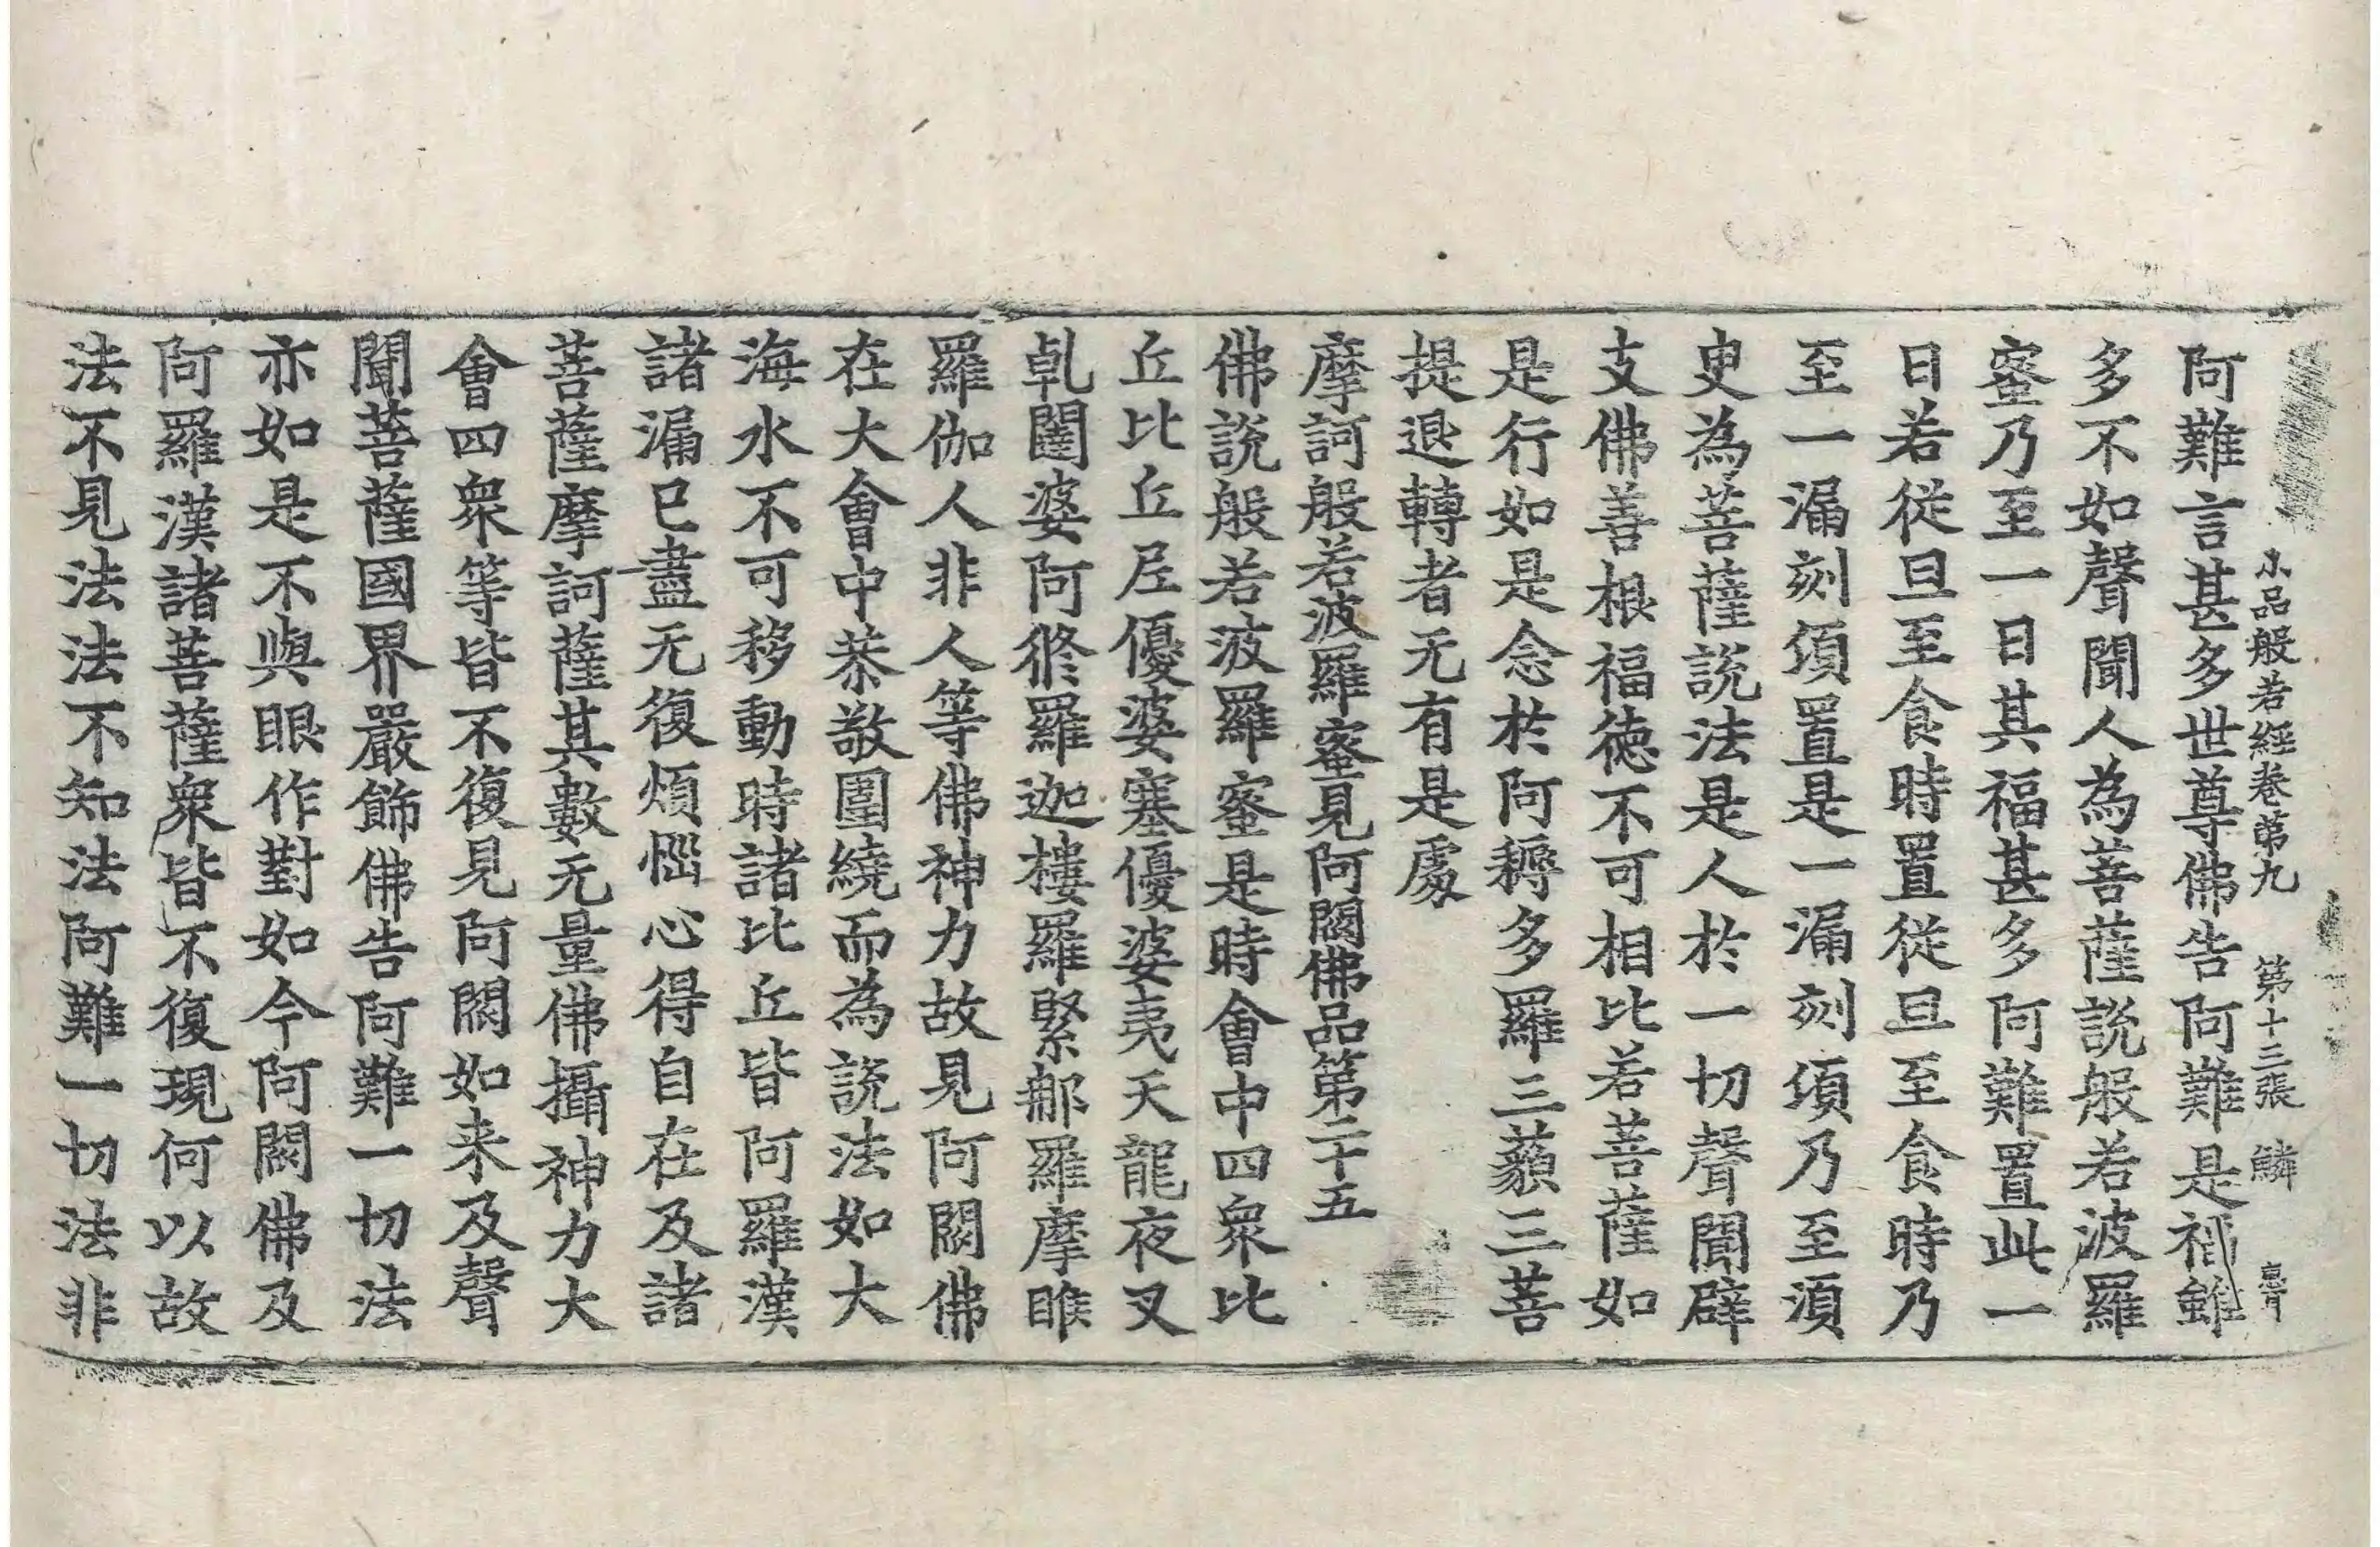 小品般若經卷第九 第十三張 鱗
阿難言甚多世尊佛告阿難是福雖
多不如聲聞人為菩薩說般若波羅
蜜乃至一日其福甚多阿難置此一
日若從旦至食時置從旦至食時乃
至一漏刻頃置是一漏刻頃乃至須
臾為菩薩說法是人於一切聲聞辟
支佛善根福德不可相比若菩薩如
是行如是念於阿耨多羅三藐三菩
提退轉者无有是處
摩訶般若波羅蜜見阿閦佛品第二十五
佛說般若波羅蜜是時會中四衆比
丘比丘尼優婆塞優婆夷天龍夜叉
乹闥婆阿脩羅迦樓羅緊那羅摩睺
羅伽人非人等佛神力故見阿閦佛
在大會中恭敬圍繞而為說法如大
海水不可移動時諸比丘皆阿羅漢
諸漏已盡无復煩惱心得自在及諸
菩薩摩訶薩其數无量佛攝神力大
會四衆等皆不復見阿閦如来及聲
聞菩薩國界嚴飾佛告阿難一切法
亦如是不與眼作對如今阿閦佛及
阿羅漢諸菩薩衆皆不復現何以故
法不見法法不知法阿難一切法非